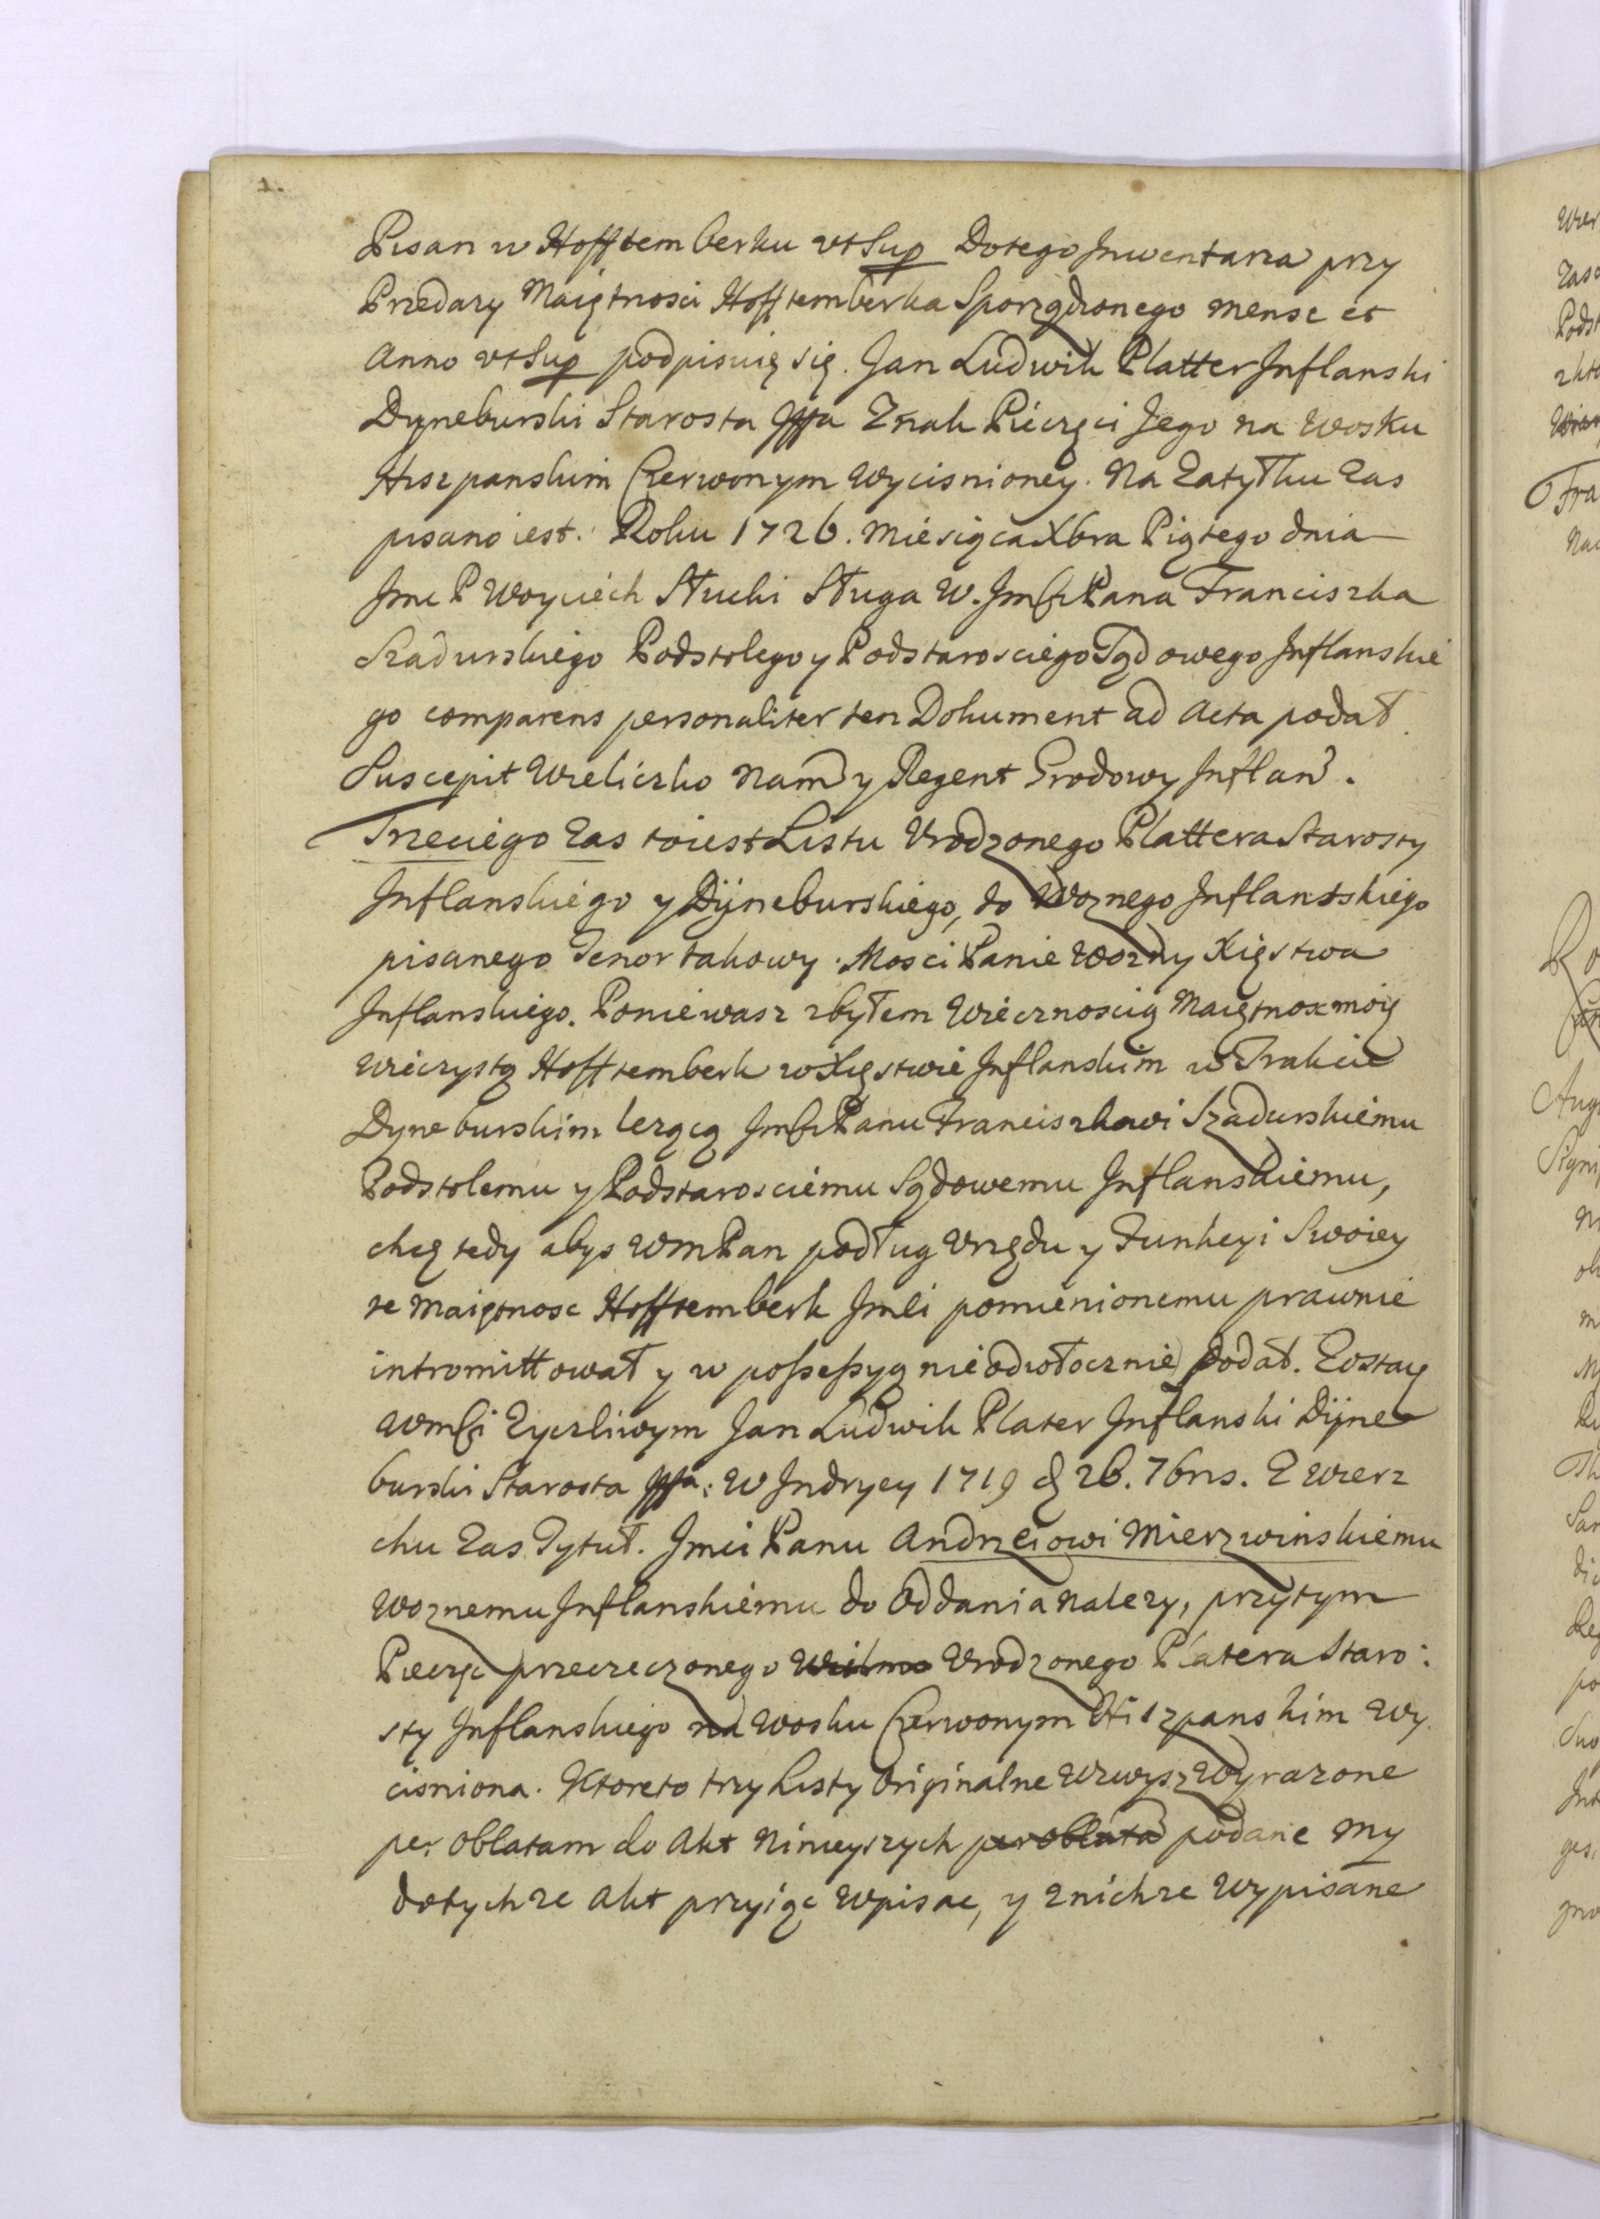 Pisan w Hofftemberku vt Sup Do tego Inwentarza przy
Przedazy Maiętnosci Hofftemberka Sporządzonego mense et
Anno vt Sup podpisuię się. Jan Ludwik Platter Inflanski
Dyneburski Starosta Znak Pieczęci Jego na Wosku
Hiszpanskim Czerwonym Wycisnioney. Na Zatyłku Zas
pisano iest. Roku 1726. Miesiąca Xbra Piątego dnia
Jmc P Woyciech Słucki Sługa W. JmCi Pana Franciszka
Szadurskiego Podstolego y Podstarosciego Sądowego Inflanskie
go comparens personaliter ten Dokument ad Acta podał.
Suscepit Wieliczko Nam y Regent Grodowy Inflan.
Trzeciego Zas toiest Listu Urodzonego Plattera Starosty
Inflanskiego y Dÿneburskiego, do Woznego Inflantskiego
pisanego Tenor takowy. Mosci Panie Wozny Xięstwa
Inflanskiego. Poniewasz zbyłem Wiecznoscią Maiętnosc moię
wieczystą Hofftemberk w Xięstwie Inflanskim w Trakcie
Dyneburskim lezącą JmCi Panu Franciszkowi Szadurskiemu
Podstolemu y Podstarosciemu Sądowemu Inflanskiemu,
chcę tedy abys WmPan podług Urzędu y Funkcyi Swoiey
te Maiętnosc Hofftemberk Jmci pomienionemu prawnie
intromittował y w poßeßyą nieodwłocznie podał. Zostaię
WmCi Zyczliwym Jan Ludwik Plater Inflanski Dÿne
burski Starosta W Indrycy 1719 d 26. 7bris. Z Wierz
chu Zas Tytuł. Jmci Panu Andrzeiowi Mierzwinskiemu
Woznemu Inflanskiemu do Oddania Nalezy, przytym
Pieczęc przerzeczonego Urodzonego Platera Staro:
sty Inflanskiego na Wosku Czerwonym Hiszpanskim Wy
cisniona. Ktoreto trzy Listy Originalne Wzwysz Wyrazone
per Oblatam do Akt Ninieyszych per oblatã podane my
dotychze Akt przyiąc Wpisac, y znichze Wypisane